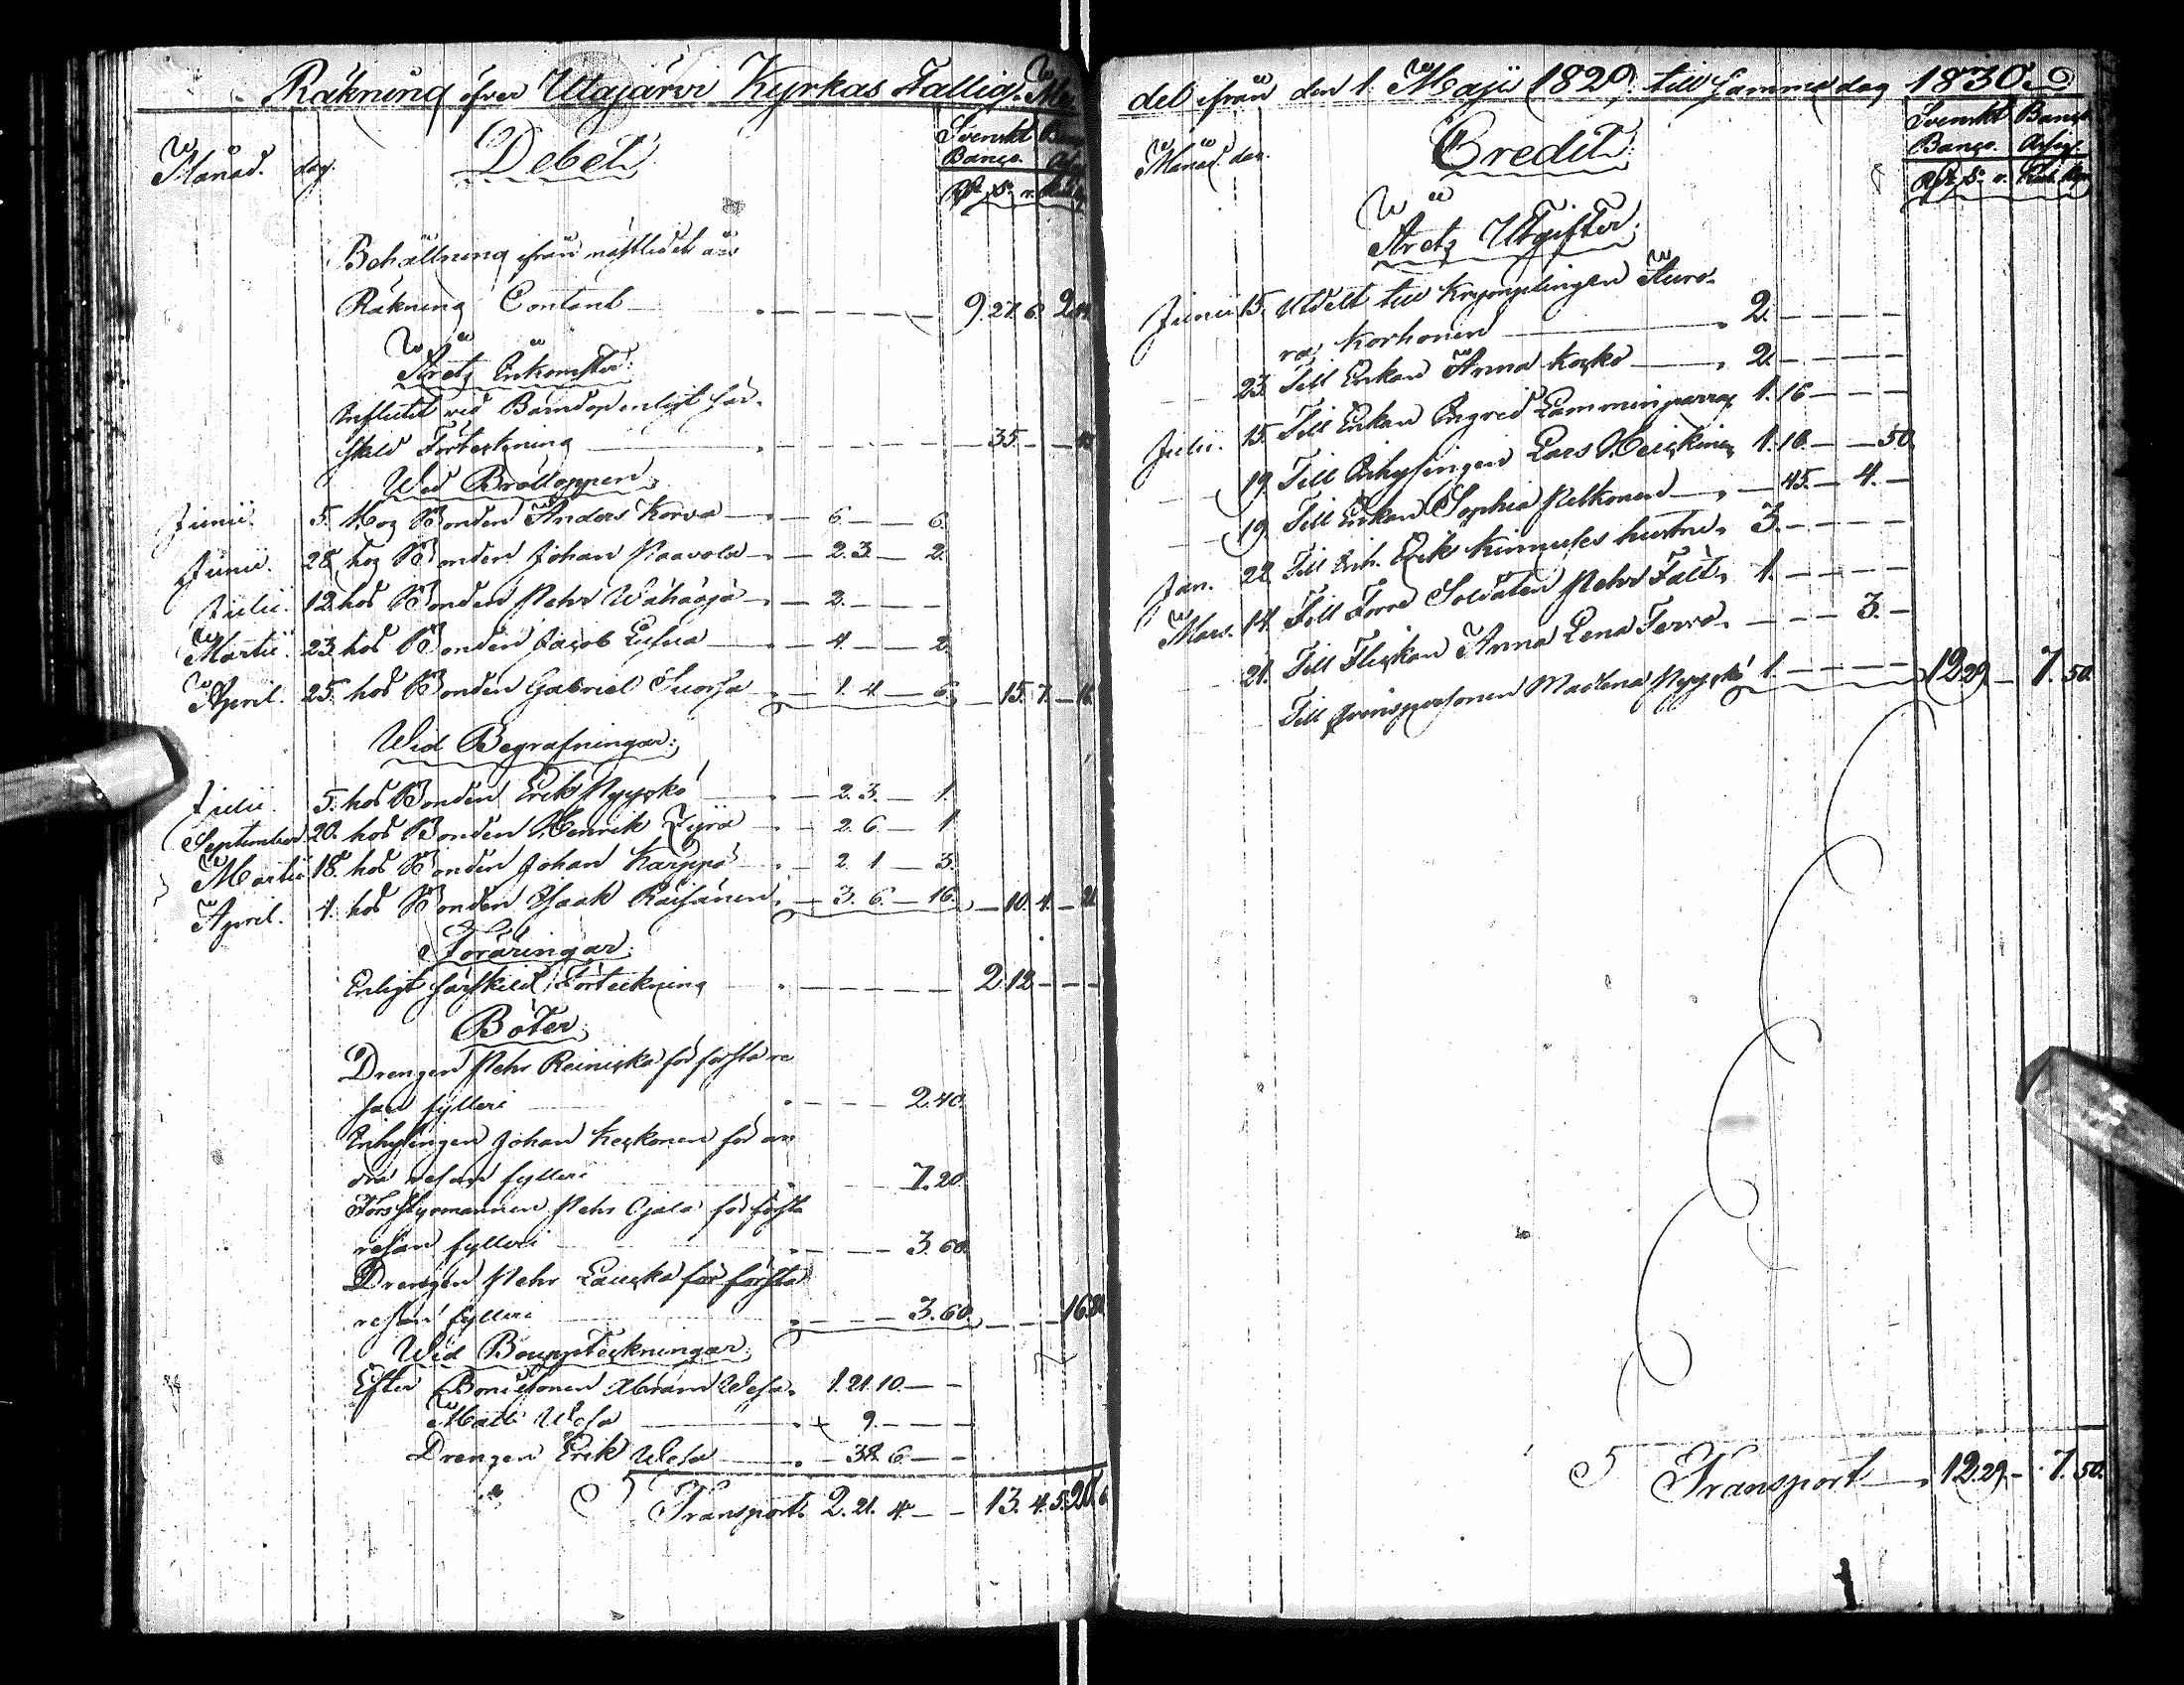 Räkning öfver Utajärvi Kyrkas Fattig
Månad. dag. Debet. Svenskt Banco.
Behållning ifrån nästledet års
Räkning Contant 9. 27. 6.
Årets Inkomster:
Influtit vid Barndop enligt sär-
skild Förteckning 35.
Wid Bröllopper.
Junii 5. Hos Bonden Anders Korva 6. 6.
Junii. 28. hos Bonden Johan Paavola 2. 3. 2.
Julii. 12. hos Bonden Pehr Wähäoja 2.
Martii. 23. hos Bonden Jacob 4. 2.
April. 25. hos Bonden Gabriel Suorsa 1. 4. 6. 15. 7. 16
Wid Begrafningar:
Julii 5. hos Bonden Erik Pyyckö 2. 3. 1.
September 20. hos Bonden Henrik 2. 6. 1.
Martii 18. hos Bonden Johan Karppa 2. 1. 3.
April. 4. hos Bonden Isaak Räisänen 3. 6. 16. 10. 4. 21.
Föräringar:
Enligt särskild Förteckning 2. 12.
Böter.
Drengen Pehr Reinicka för första re
san fylleri 2. 40.
Inhysingen Johan Keckonen för an
dra resan fylleri 7. 20.
Forsstyrmannen Pehr Ojala för första
resan fylleri 3. 60.
Drengen Pehr Laucka för första
resan fylleri 3. 60. 16. 80
Wid Bouppteckningar.
Efter Bondesonen Abram Wesa 1. 21. 10.
Matts Wesa 9.
Drengen Erik Wesa 38. 6.
Transport 2. 21. 4. 13. 4. 5.
del ifrån den 1. Maji 1829 till samma dag 1830.
Månad. dag. Credit. Svenskt Banco. Banco Assig.
Årets Utgifter.
Junii 15. Utdelt till Krymplingen Auro-
ra Korhonen 2.
23. Till Enkan Anna Kocko 2.
Julii. 15. Till Enkan Ingrid Lamminparras 1. 16
19. Till Inhysingen Lars Heickinen 1. 16. 50.
19. Till Enkan Sophia Pelkonen 45. 4.
Jan. 22. Till Inh. Erik Kinnules hustru 3.
Mars. 14. Till Förre Soldaten Pehr Fält 1.
21. Till Flickan Anna Lena Tervo 3.
Till qvinspersonen Madlena Pyyckö 1. 12. 29. 7. 50.
Transport 12. 29. 7. 50.